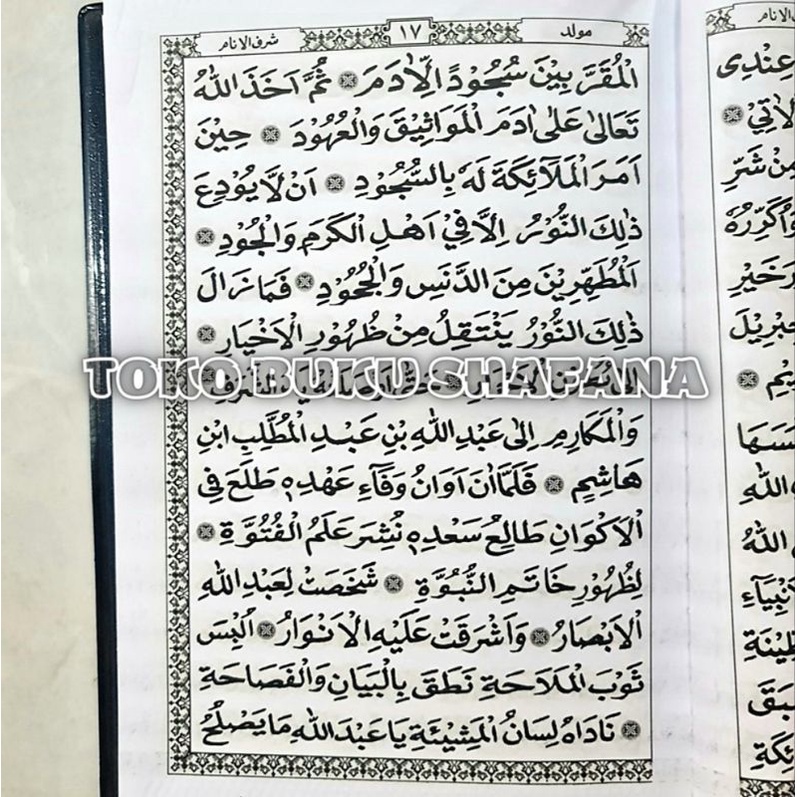 مولد ١٧ شرف الانام
الْمُقَرَّبِيْنَ سُجُوْدًا لِّاٰدَمَ ۞ ثُمَّ اَخَذَ اللّٰهُ
تَعَالٰى عَلٰى اٰدَمَ الْمَوَاثِيْقَ وَالْعُهُوْدَ ۞ حِيْنَ
اَمَرَ الْمَلَآئِكَةَ لَهٗ بِالسُّجُوْدِ ۞ اَنْ لَّا يُوْدِعَ
ذٰلِكَ النُّوْرُ اِلَّا فِيْ اَهْلِ الْكَرَمِ وَالْجُوْدِ ۞
اَلْمُطَهَّرِيْنَ مِنَ الدَّنَسِ وَالْجُحُوْدِ ۞ فَمَا زَالَ
ذٰلِكَ النُّوْرُ يَنْتَقِلُ مِنْ ظُهُوْرِ الْاَخْيَارِ ۞
TOKO BUKU SHAFANA
وَالْمَكَارِمِ اِلٰى عَبْدِ اللّٰهِ بْنِ عَبْدِ الْمُطَّلِبِ ابْنِ
هَاشِمٍ ۞ فَلَمَّا اٰنَ اَوَانُ وَفَآءِ عَهْدِهٖ طَلَعَ فِى
الْاَكْوَانِ طَالِعُ سَعْدِهٖ نُشِرَ عَلَمُ الْفُتُوَّةِ ۞
لِظُهُوْرِ خَاتَمِ النُّبُوَّةِ ۞ شَخَصَتْ لِعَبْدِ اللّٰهِ
الْاَبْصَارُ ۞ وَاَشْرَقَتْ عَلَيْهِ الْاَنْوَارُ ۞ اُلْبِسَ
ثَوْبَ الْمَلَاحَةِ نَطَقَ بِالْبَيَانِ وَالْفَصَاحَةِ
۞ نَادَاهُ لِسَانُ الْمَشِيْئَةِ يَا عَبْدَ اللّٰهِ مَا يَصْلُحُ